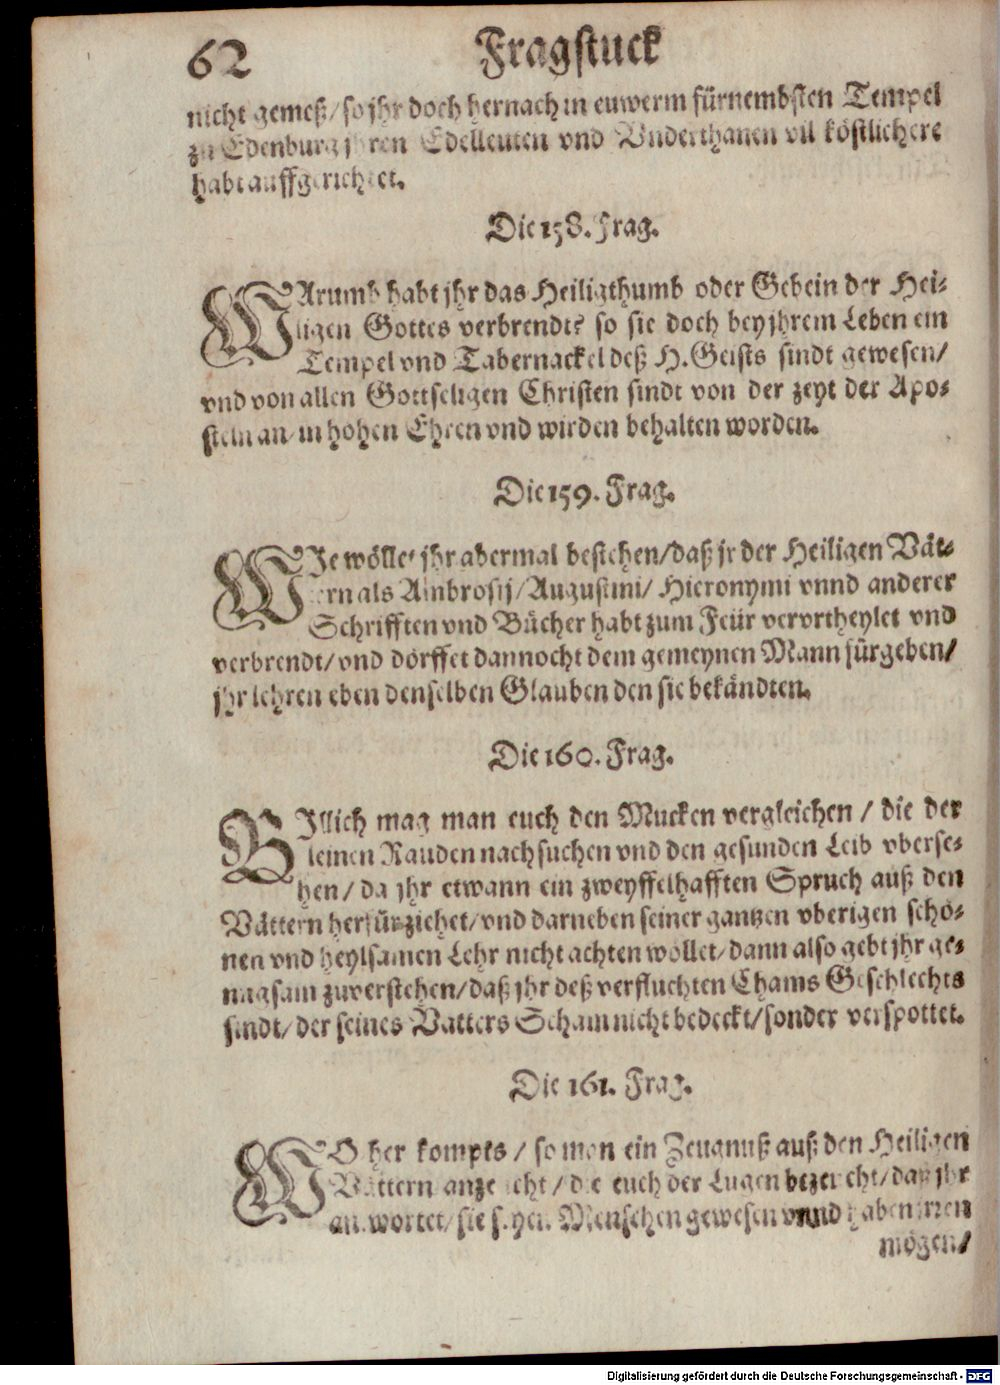 62 Fragstuck
nicht gemeß/ so jhr doch hernach in euwerm fürnembsten Tempel
zu Edenburg jhren Edelleuten vnd Vnderthanen vil köstlichere
habt auffgerichtet.
Die 158. Frag.
WArumb habt jhr das Heiligthumb oder Gebein der Hei-
ligen Gottes verbrendt? so sie doch bey jhrem Leben ein
Tempel vnd Tabernackel deß H. Geists sindt gewesen/
vnd von allen Gottseligen Christen sindt von der zeyt der Apo-
steln an/ in hohen Ehren vnd wirden behalten worden.
Die 159. Frag.
WIe wöllet jhr abermal bestehen/ daß jr der Heiligen Vät-
tern als Ambrosij/ Augustini/ Hieronymi vnnd anderer
Schrifften vnd Bücher habt zum Feür vervrtheylet vnd
verbrendt/ vnd dörffet dannocht dem gemeynen Mann fürgeben/
jhr lehren eben denselben Glauben den sie bekändten.
Die 160. Frag.
BIllich mag man euch den Mucken vergleichen / die der
kleinen Rauden nachsuchen vnd den gesunden Leib vberse-
hen / da jhr etwann ein zweyffelhafften Spruch auß den
Vättern herfür ziehet/ vnd darneben seiner gantzen vberigen schö-
nen vnd heylsamen Lehr nicht achten wöllet/ dann also gebt jhr ge-
nugsam zuverstehen/ daß jhr deß verfluchten Chams Geschlechts
sindt/ der seines Vatters Scham nicht bedeckt/ sonder verspottet.
Die 161. Frag.
WO her kompts / so man ein Zeugnuß auß den Heiligen
Vättern anzeucht / die euch der Lugen bezeucht/ daß jhr
antwortet/ sie seyen Menschen gewesen vnnd haben irren
mögen/
Digitalisierung gefördert durch die Deutsche Forschungsgemeinschaft - DFG